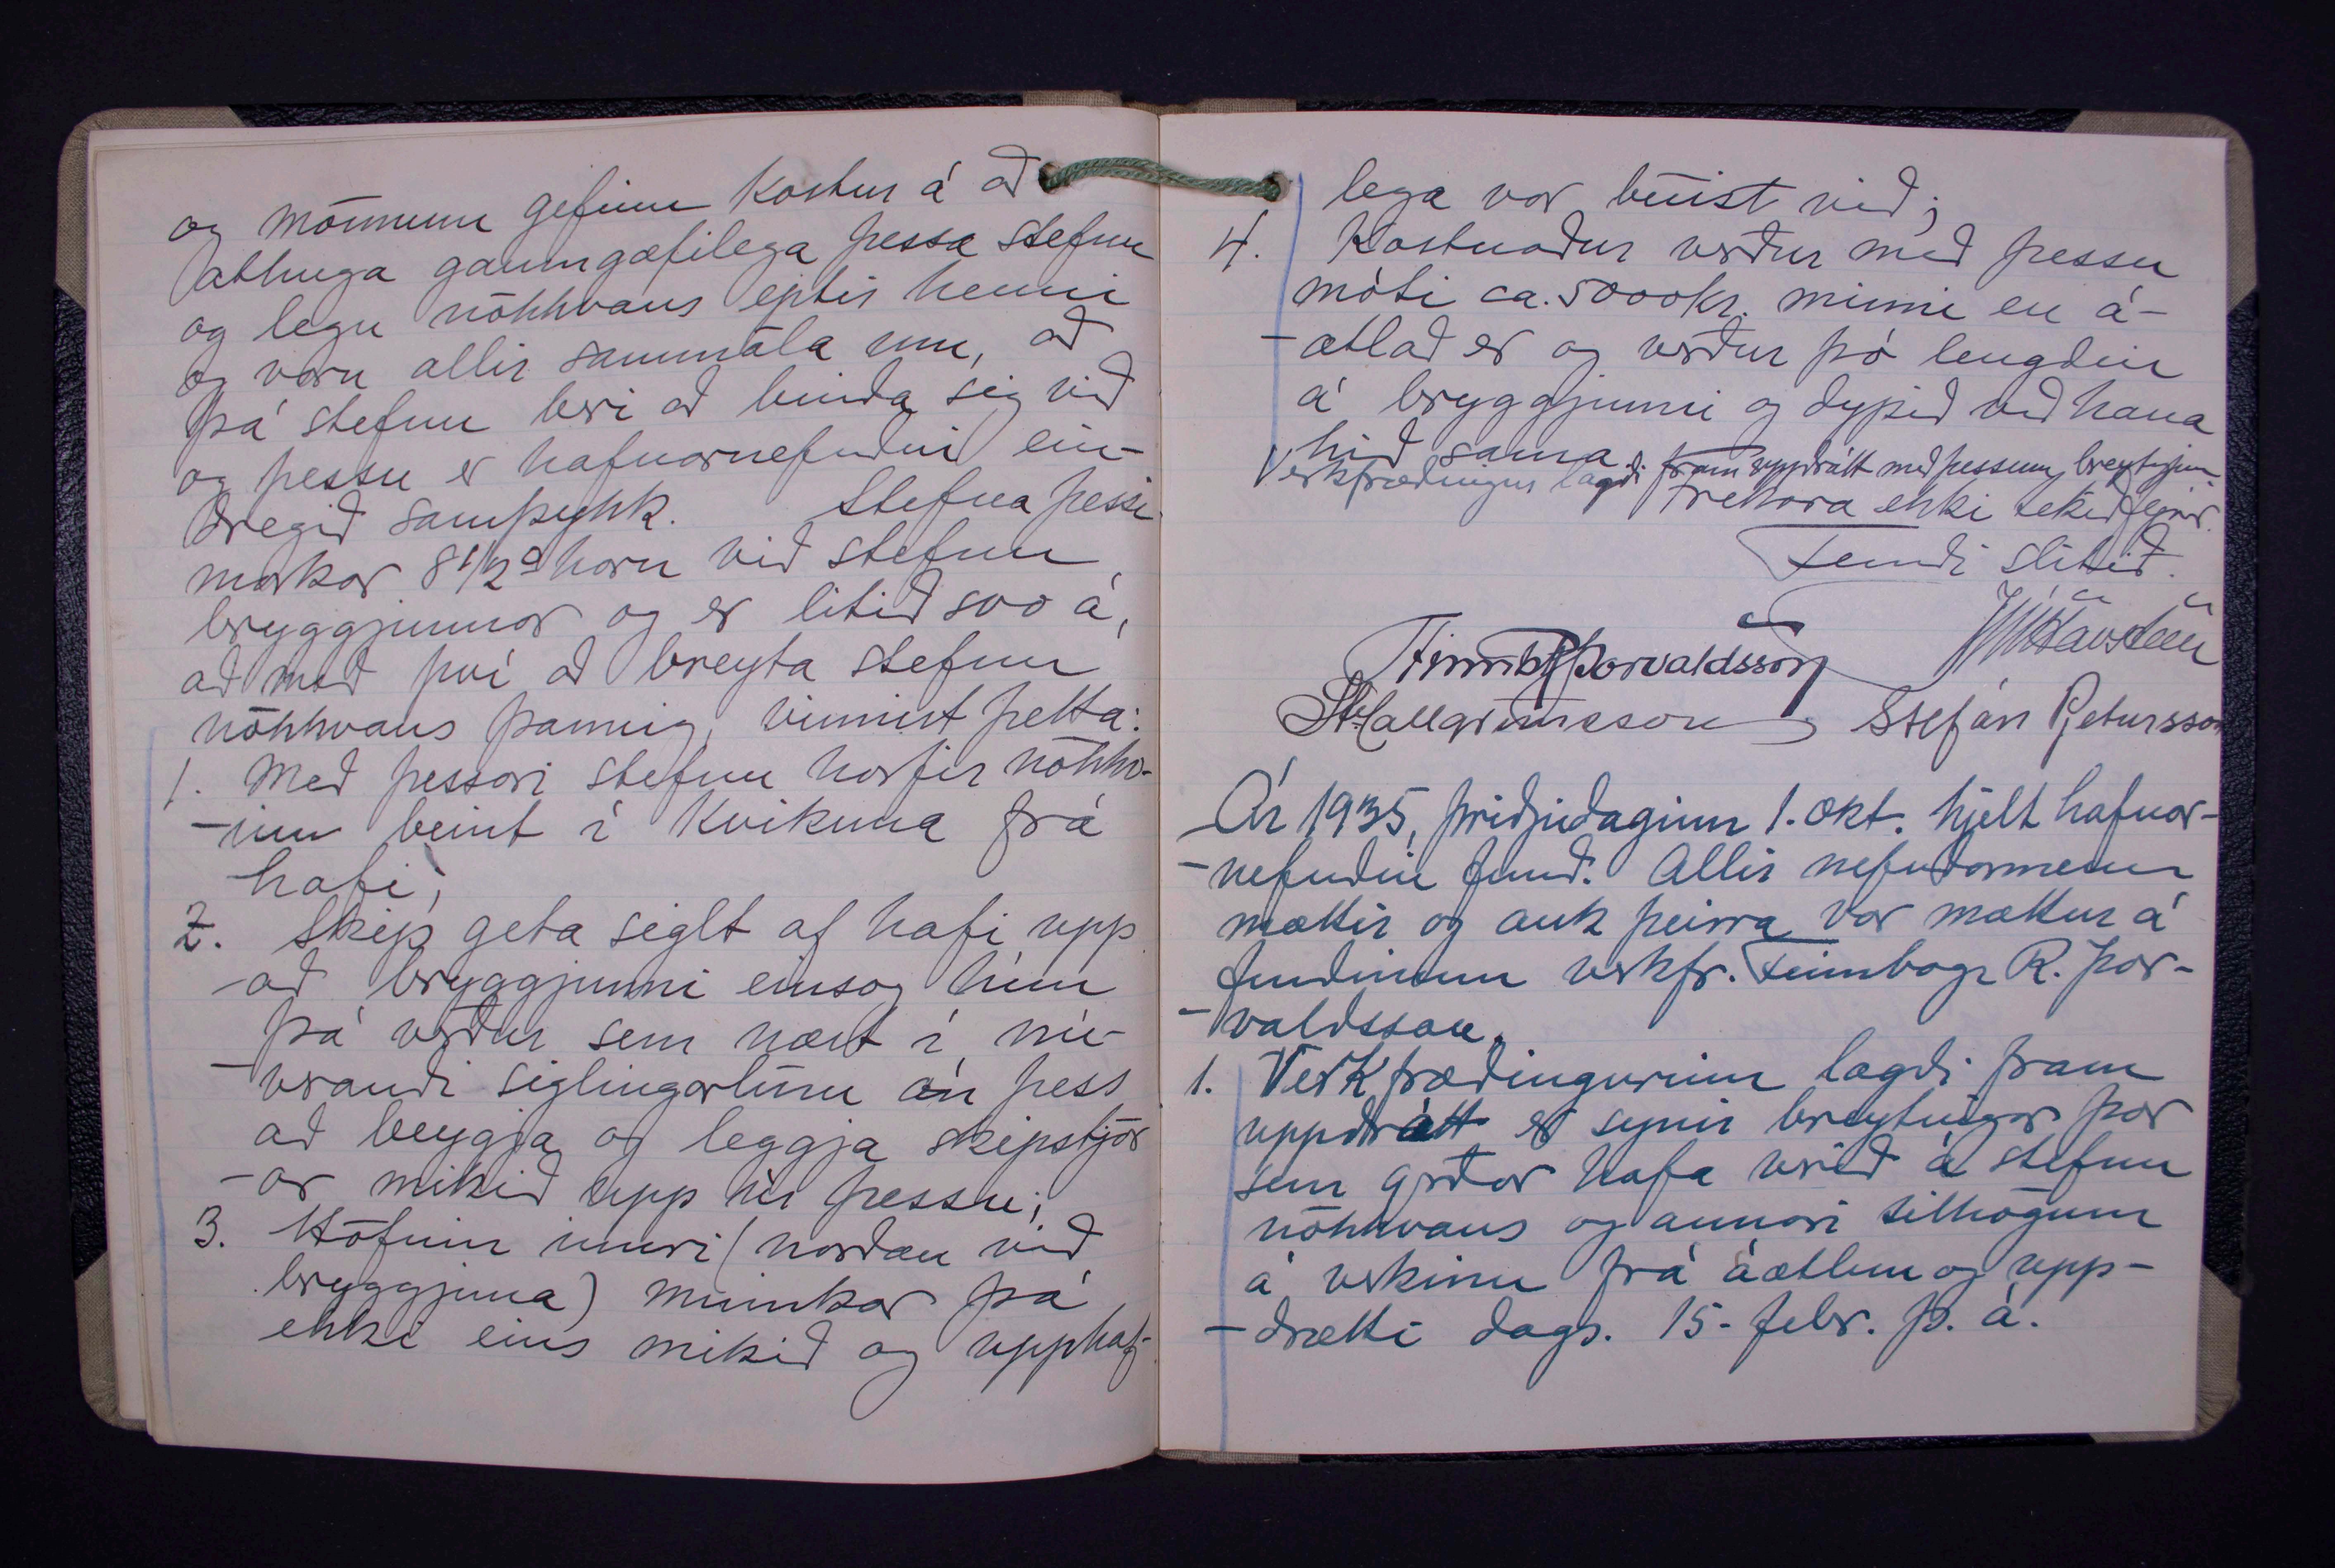 og mönnum gefinn kostur á að
athuga gaumgæfilega þessa stefnu
og legu nökkvans eptir henni
og voru allir sammála um, að
þá stefnu beri að binda sig við
og þessu er hafnarnefndin ein-
dregið samþykk. Stefna þessi
markar 8 1/2° horn við stefnu
bryggjunnar og er litið svo á,
að með því að breyta stefnu
nökkvans þannig, vinnist þetta:
1. Með þessari stefnu horfir nökkv-
-inn beint í Kvikuna frá
hafi;
2. Skip geta siglt af hafi upp
að bryggjunni einsog hún
þá verður sem næst í nú-
-verandi siglingarlínu án þess
að beygja og leggja skipstjór
-ar mikið upp úr þessu;
3. Höfnin innri (norðan við
bryggjuna) minnkar þá
ekki eins mikið og upphaf-
lega var búist við;
4. Kostnaður verður með þessu
móti ca. 5000kr. minni en á-
-ætlað er og verður þó lengdin
á bryggjunni og dýpið við hana
hið sama.
Verkfræðingur lagði fram uppdrátt með þessum breytingum.
Frekara ekki tekið fyrir.
Fundi slitið.
Finnb R Þorvaldsson JVHavsteen
St Hallgrímsson Stefán Pjetursson
Ár 1935, þriðjudaginn 1. okt. hjelt hafnar-
-nefndin fund. Allir nefndarmenn
mættir og auk þeirra var mættur á
fundinum verkfr. Finnbogi R. Þor-
-valdsson.
1. Verkfræðingurinn lagði fram
uppdrátt er sýnir breytingar þær
sem gerðar hafa verið á stefnu
nökkvans og annari tilhögum
á verkinu frá áætlun og upp-
-drætti dags. 15. febr. þ. á.